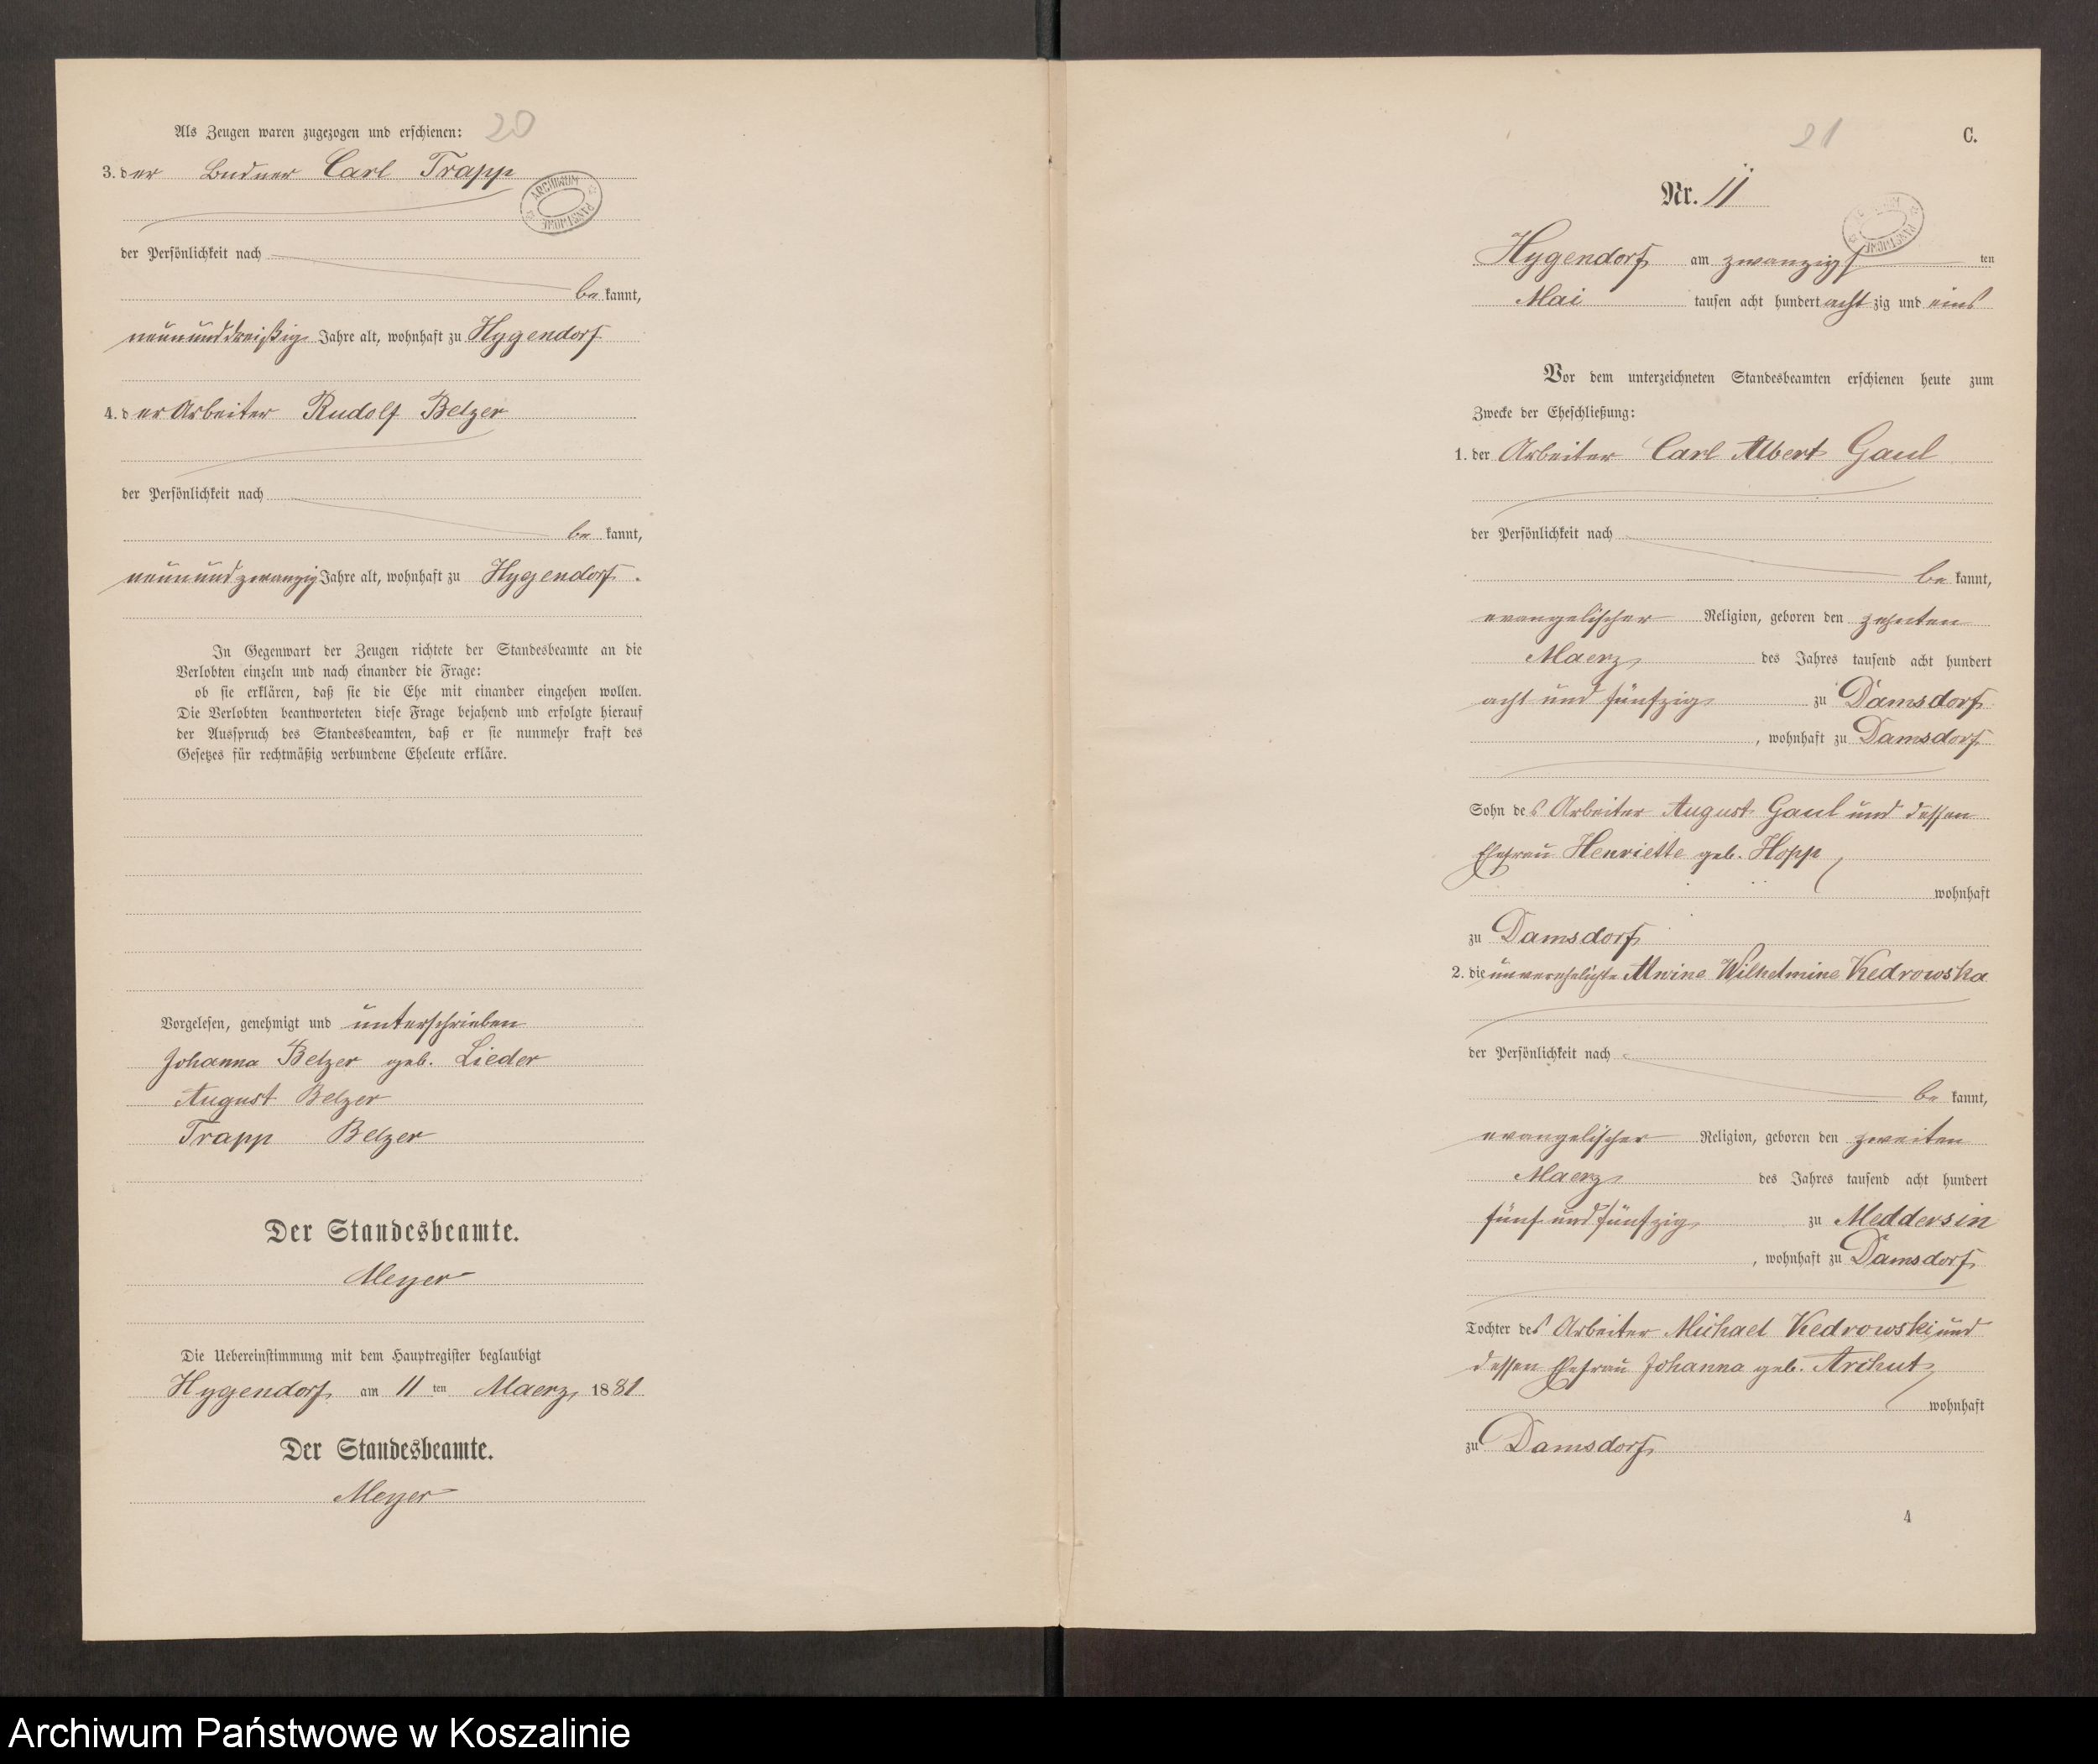 20
Als Zeugen waren zugezogen und erschienen:
3. der Büdner Carl Trapp
ARCHIWUM PAŃSTWOWE
der Persönlichkeit nach
be kannt,
neununddreißig Jahre alt, wohnhaft zu Hygendorf
4. der Arbeiter Rudolf Belzer
der Persönlichkeit nach
be kannt,
neunundzwanzig Jahre alt, wohnhaft zu Hygendorf.
In Gegenwart der Zeugen richtete der Standesbeamte an die
Verlobten einzeln und nach einander die Frage:
ob sie erklären, daß sie die Ehe mit einander eingehen wollen.
Die Verlobten beantworteten diese Frage bejahend und erfolgte hierauf
der Ausspruch des Standesbeamten, daß er sie nunmehr kraft des
Gesetzes für rechtmäßig verbundene Eheleute erkläre.
Vorgelesen, genehmigt und unterschrieben
Johanna Belzer geb. Lieder
August Belzer
Trapp Belzer
Der Standesbeamte.
Meyer
Die Uebereinstimmung mit dem Hauptregister beglaubigt
Hygendorf am 11 ten Maerz 1881
Der Standesbeamte.
Meyer
21
C.
Nr. 11
Hygendorf am zwanzigs ten
Mai tausen acht hundert acht zig und eins
Vor dem unterzeichneten Standesbeamten erschienen heute zum
Zwecke der Eheschließung:
1. der Arbeiter Carl Albert Gaul
der Persönlichkeit nach
be kannt,
evangelischer Religion, geboren den zehnten
Maerz des Jahres tausend acht hundert
acht und fünfzig zu Damsdorf
, wohnhaft zu Damsdorf
Sohn des Arbeiter August Gaul und dessen
Ehefrau Henriette geb. Hopp,
wohnhaft
zu Damsdorf
2. die unverehelichte Alwine Wilhelmine Kedrowska
der Persönlichkeit nach
be kannt,
evangelischer Religion, geboren den zweiten
Maerz des Jahres tausend acht hundert
fünf und fünfzig zu Meddersin
, wohnhaft zu Damsdorf
Tochter des Arbeiter Michael Kedrowski und
dessen Ehefrau Johanna geb. Archut,
wohnhaft
zu Damsdorf
4
Archiwum Państwowe w Koszalinie